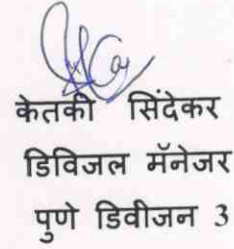 केतकी सिंदेकर
डिविजल मॅनेजर
पुणे डिवीजन 3